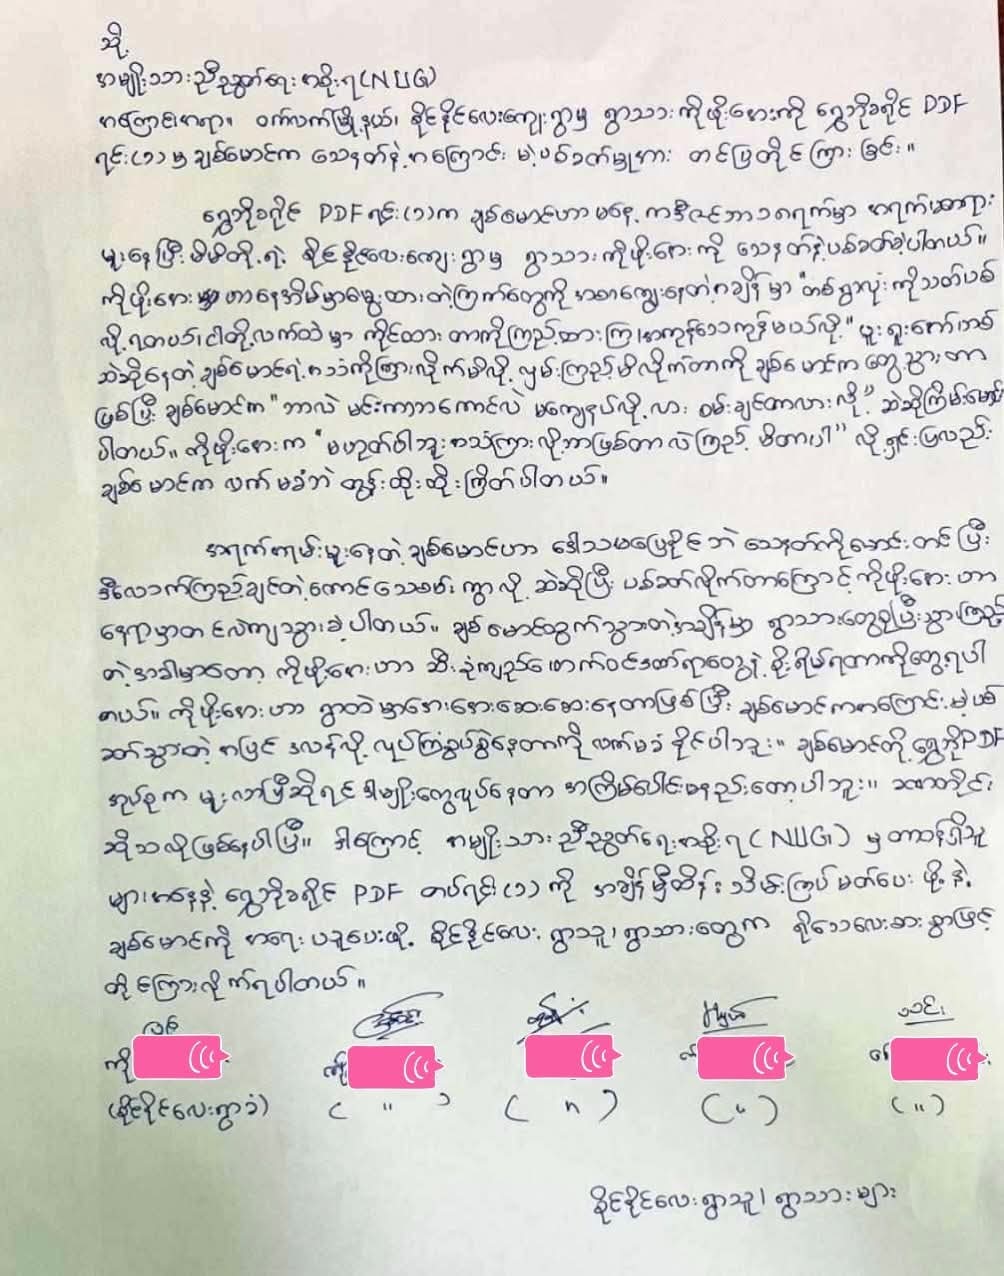 သို့
အမျိုးသားညီညွတ်ရေးအစိုးရ(NUG)
အကြောင်းအရာ။ ဝက်လက်မြို့နယ်၊ ခိုင်ခိုင်လေးကျေးရွာမှ ရွာသား ကိုဖိုးအေးကို ရွှေဘိုခရိုင် PDF
ရင်း(၁)မှ ချစ်မောင်က သေနတ်နဲ့ အကြောင်းမဲ့ပစ်ခတ်မှုအား တင်ပြတိုင်ကြားခြင်း။
ရွှေဘိုခရိုင် PDF ရင်း(၁)က ချစ်မောင်ဟာ မနေ့က ဒီဇင်ဘာ ၁ရက်မှာ အရက်သေစာ
မူးနေပြီး မိမိတို့ရဲ့ ခိုင်ခိုင်လေးကျေးရွာမှ ရွာသားကိုဖိုးအေးကို သေနတ်နဲ့ပစ်ခတ်ခဲ့ပါတယ်။
ကိုဖိုးအေး ဟာနေအိမ်မှာမွေးထားတဲ့ကြက်တွေကို အစာကျွေးနေတဲ့အချိန်မှာ "တစ်ရွာလုံးကိုသတ်ပစ်
လို့ရတယ်၊ ငါတို့လက်ထဲမှာ ကိုင်ထားတာကိုကြည့်ထားကြ၊ အကုန်သေကုန်မယ်လို့"
ဆဲဆိုနေတဲ့ ချစ်မောင်ရဲ့အသံကိုကြားလိုက်မိလို့ လှမ်းကြည့်မိလိုက်တာကို ချစ်မောင်က တွေ့သွားတာ
ဖြစ်ပြီး ချစ်မောင်က "ဘာလဲ မင်းကဘာကောင်လဲ မကျေနပ်လို့လား စမ်းချင်တာလားလို့" ဆဲဆိုကြိမ်းမောင်း
ပါတယ်။ ကိုဖိုးအေးက "မဟုတ်ပါဘူး အသံကြားလို့ဘာဖြစ်တာလဲကြည့်မိတာပါ" လို့ရှင်းပြလည်း
ချစ်မောင်က လက်မခံဘဲ တွန်းထိုးထိုးကြိတ်ပါတယ်။
အရက်အရမ်းမူးနေတဲ့ ချစ်မောင်ဟာ ဒေါသမပြေနိုင်ဘဲ သေနတ်ကိုမောင်းတင်ပြီး
ဒီလောက်ကြည့်ချင်တဲ့ကောင် သေစမ်းကွာလို့ ဆဲဆိုပြီး ပစ်ခတ်လိုက်တာကြောင့် ကိုဖိုးအေးဟာ
နေရာမှာတင်လဲကျသွားခဲ့ပါတယ်။ ချစ်မောင်ထွက်သွားတဲ့အချိန်မှာ ရွာသားတွေစုပြီးသွားကြည့်
တဲ့အခါမှာတော့ ကိုဖိုးအေးဟာ ဆီးခုံကျည်ဖောက်ဝင်ဒဏ်ရာဝေဒနဲ့ စိုးရိမ်ရတာကိုတွေ့ရပါ
တယ်။ ကိုဖိုးအေးဟာ ရွာထဲမှာအေးအေးဆေးဆေးနေတာဖြစ်ပြီး ချစ်မောင်ကအကြောင်းမဲ့ပစ်
ခတ်သွားတဲ့အပြင် ဒလန်လို့ လုပ်ကြံစွပ်စွဲနေတာကို လက်မခံနိုင်ပါဘူး။ ချစ်မောင်တို့ ရွှေဘိုPDF
အုပ်စုက မူးလာပြီဆိုရင် ဒါမျိုးတွေလုပ်နေတာ အကြိမ်ပေါင်းမနည်းတော့ပါဘူး။ ခဏတိုင်း
ဆိုသလိုဖြစ်နေပါပြီ။ ဒါကြောင့် အမျိုးသားညီညွတ်ရေးအစိုးရ (NUG) မှ တာဝန်ရှိသူ
များအနေနဲ့ ရွှေဘိုခရိုင် PDF တပ်ရင်း(၁)ကို အချိန်မှီထိန်းသိမ်းကြပ်မတ်ပေးဖို့နဲ့
ချစ်မောင်ကို အရေးယူပေးဖို့ ခိုင်ခိုင်လေး ရွာသူ၊ ရွာသားတွေက ရိုသေလေးစားစွာဖြင့်
တိုင်ကြားလိုက်ရပါတယ်။
ကို
(ခိုင်ခိုင်လေးရွာခံ) ( " ) ( " ) ( " ) ( " )
ခိုင်ခိုင်လေးရွာသူ၊ ရွာသားများ